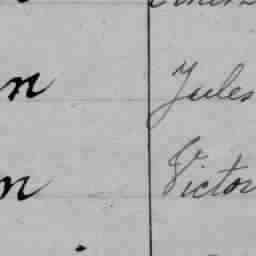 n Jules
n Victor